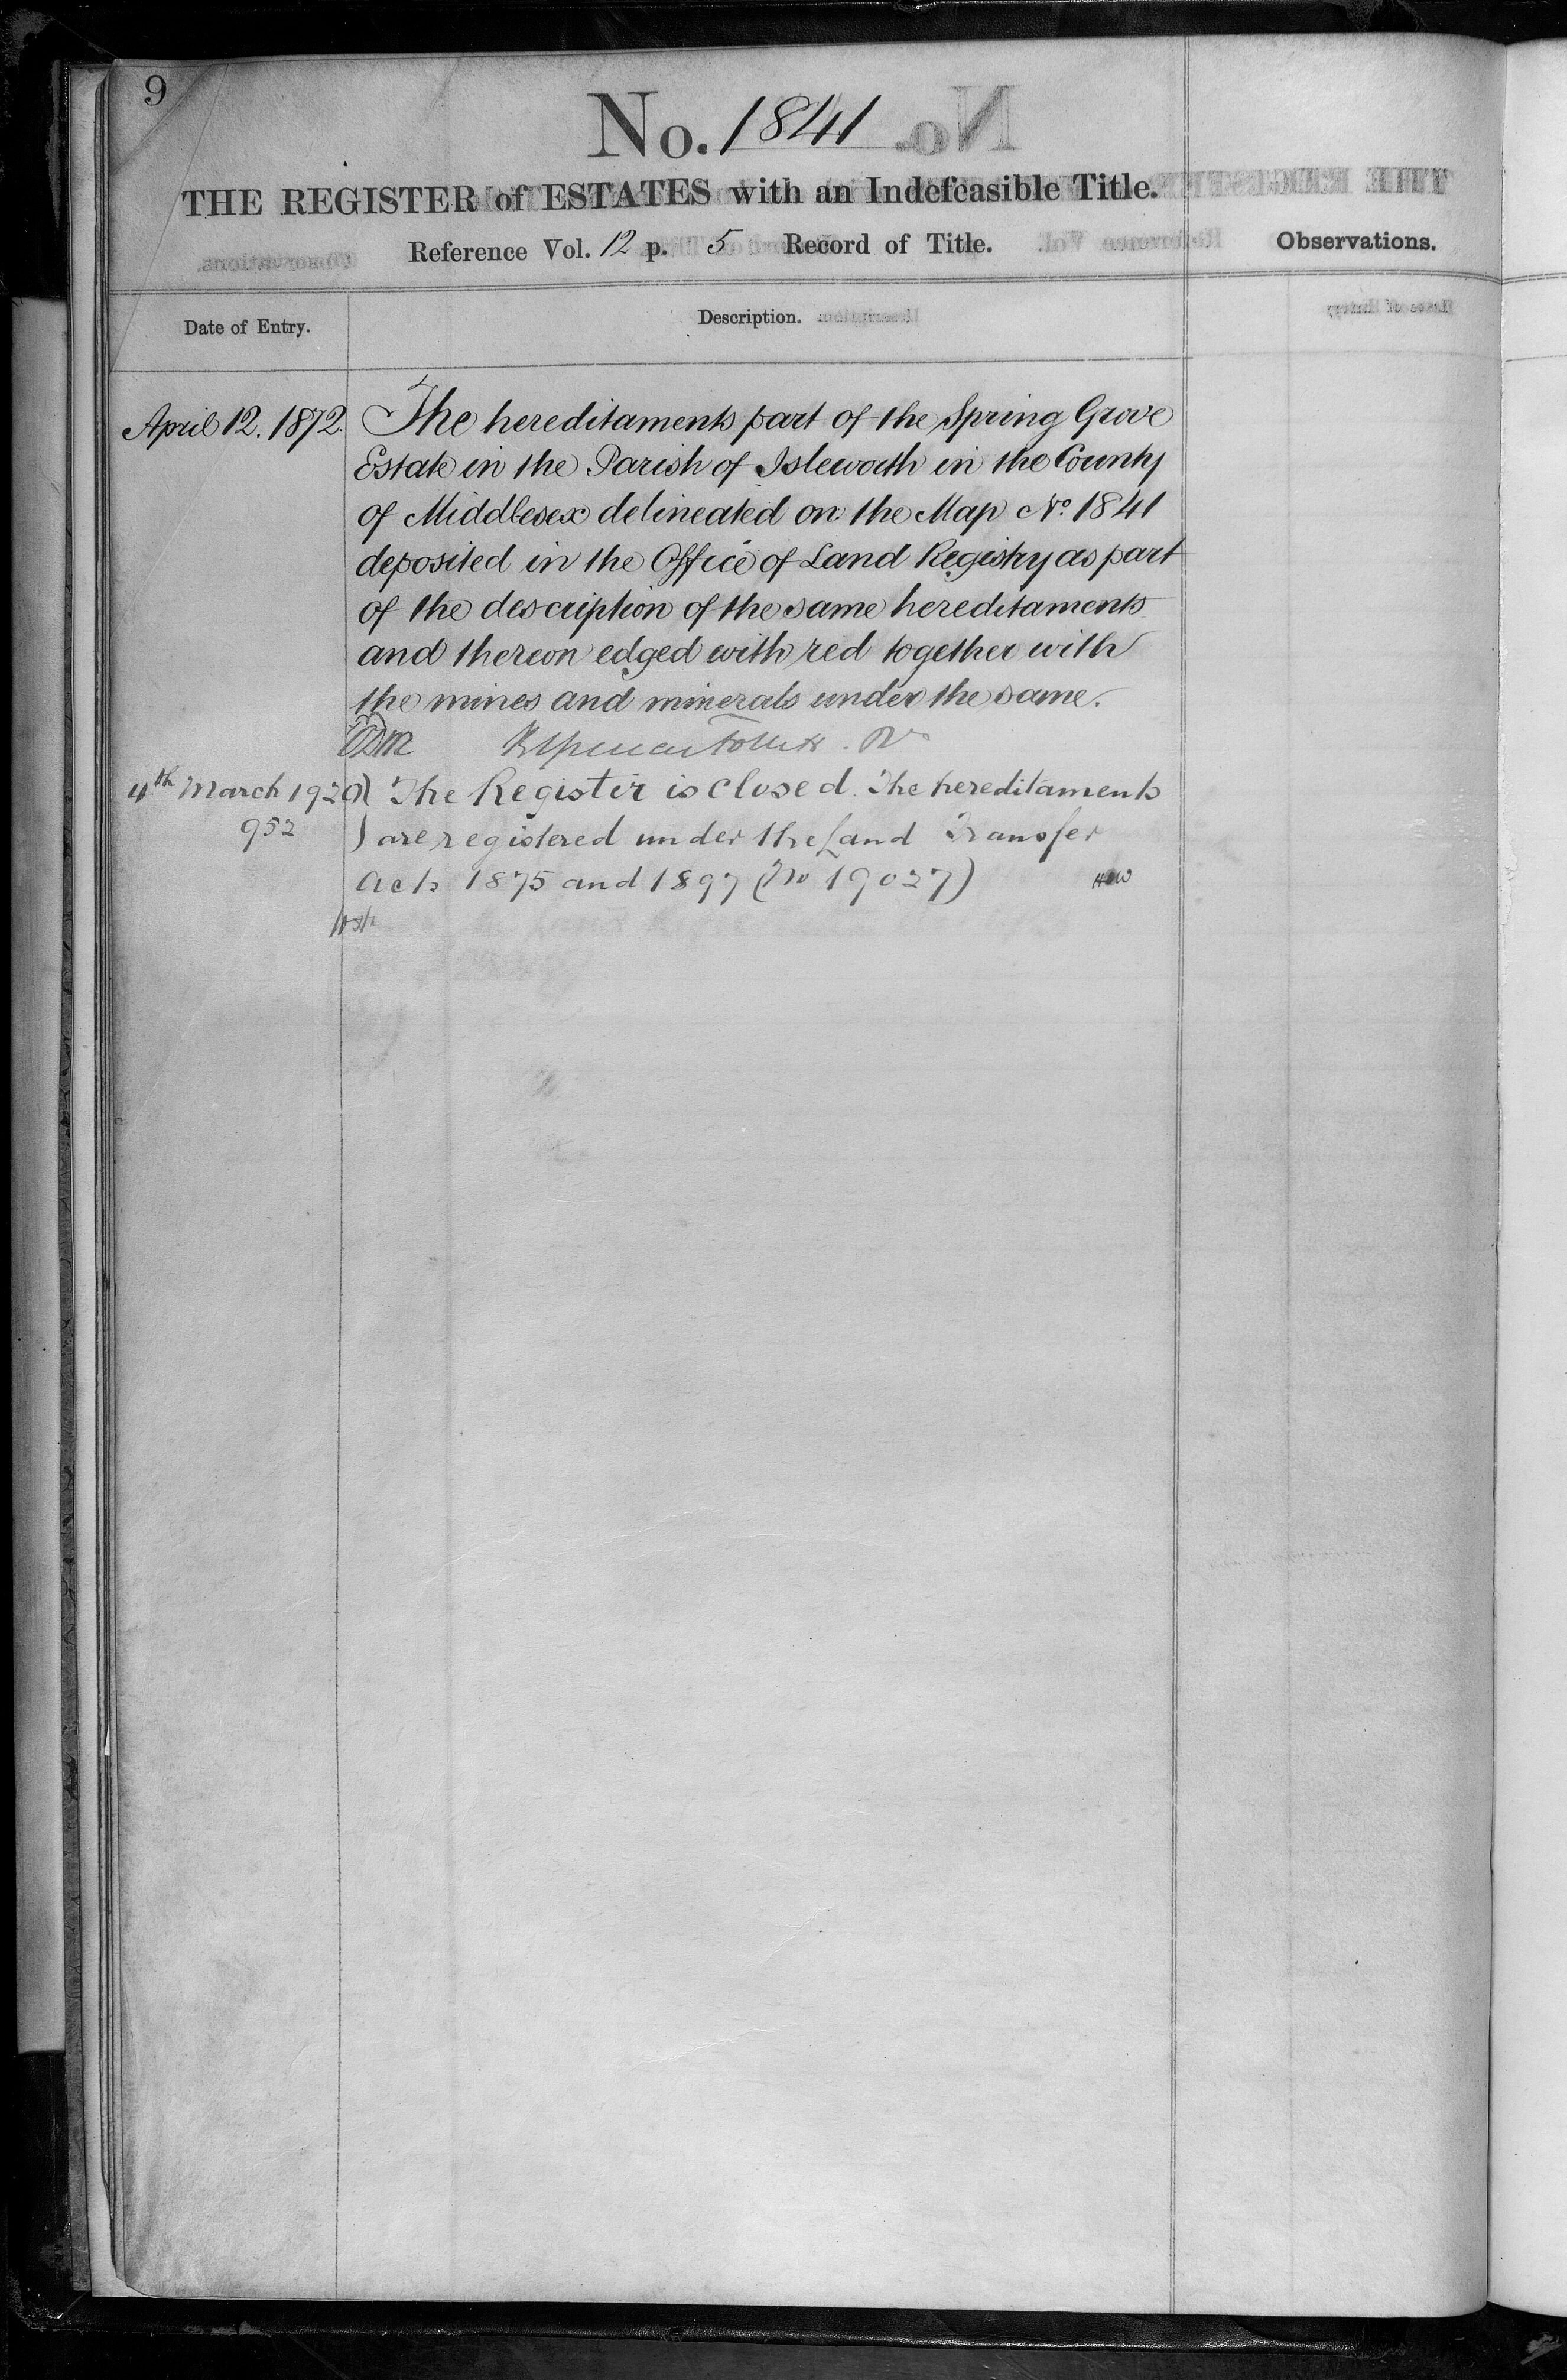 9
No. 1841
THE REGISTER of ESTATES with an Indefeasible Title.
Reference Vol. 12 p. 5 Record of Title.
Observations.
Date of Entry.
Description.
April 12. 1872. The hereditaments part of the Spring Grove
Estate in the Parish of Isleworth in the County
of Middlesex delineated on the Map No. 1841
deposited in the Office of Land Registry as part
of the description of the same hereditaments
and thereon edged with red together with
the mines and minerals under the same.
4th March 1920 The Register is closed. The hereditaments
952 are registered under the Land Transfer
Acts 1875 and 1897 (No 19027)